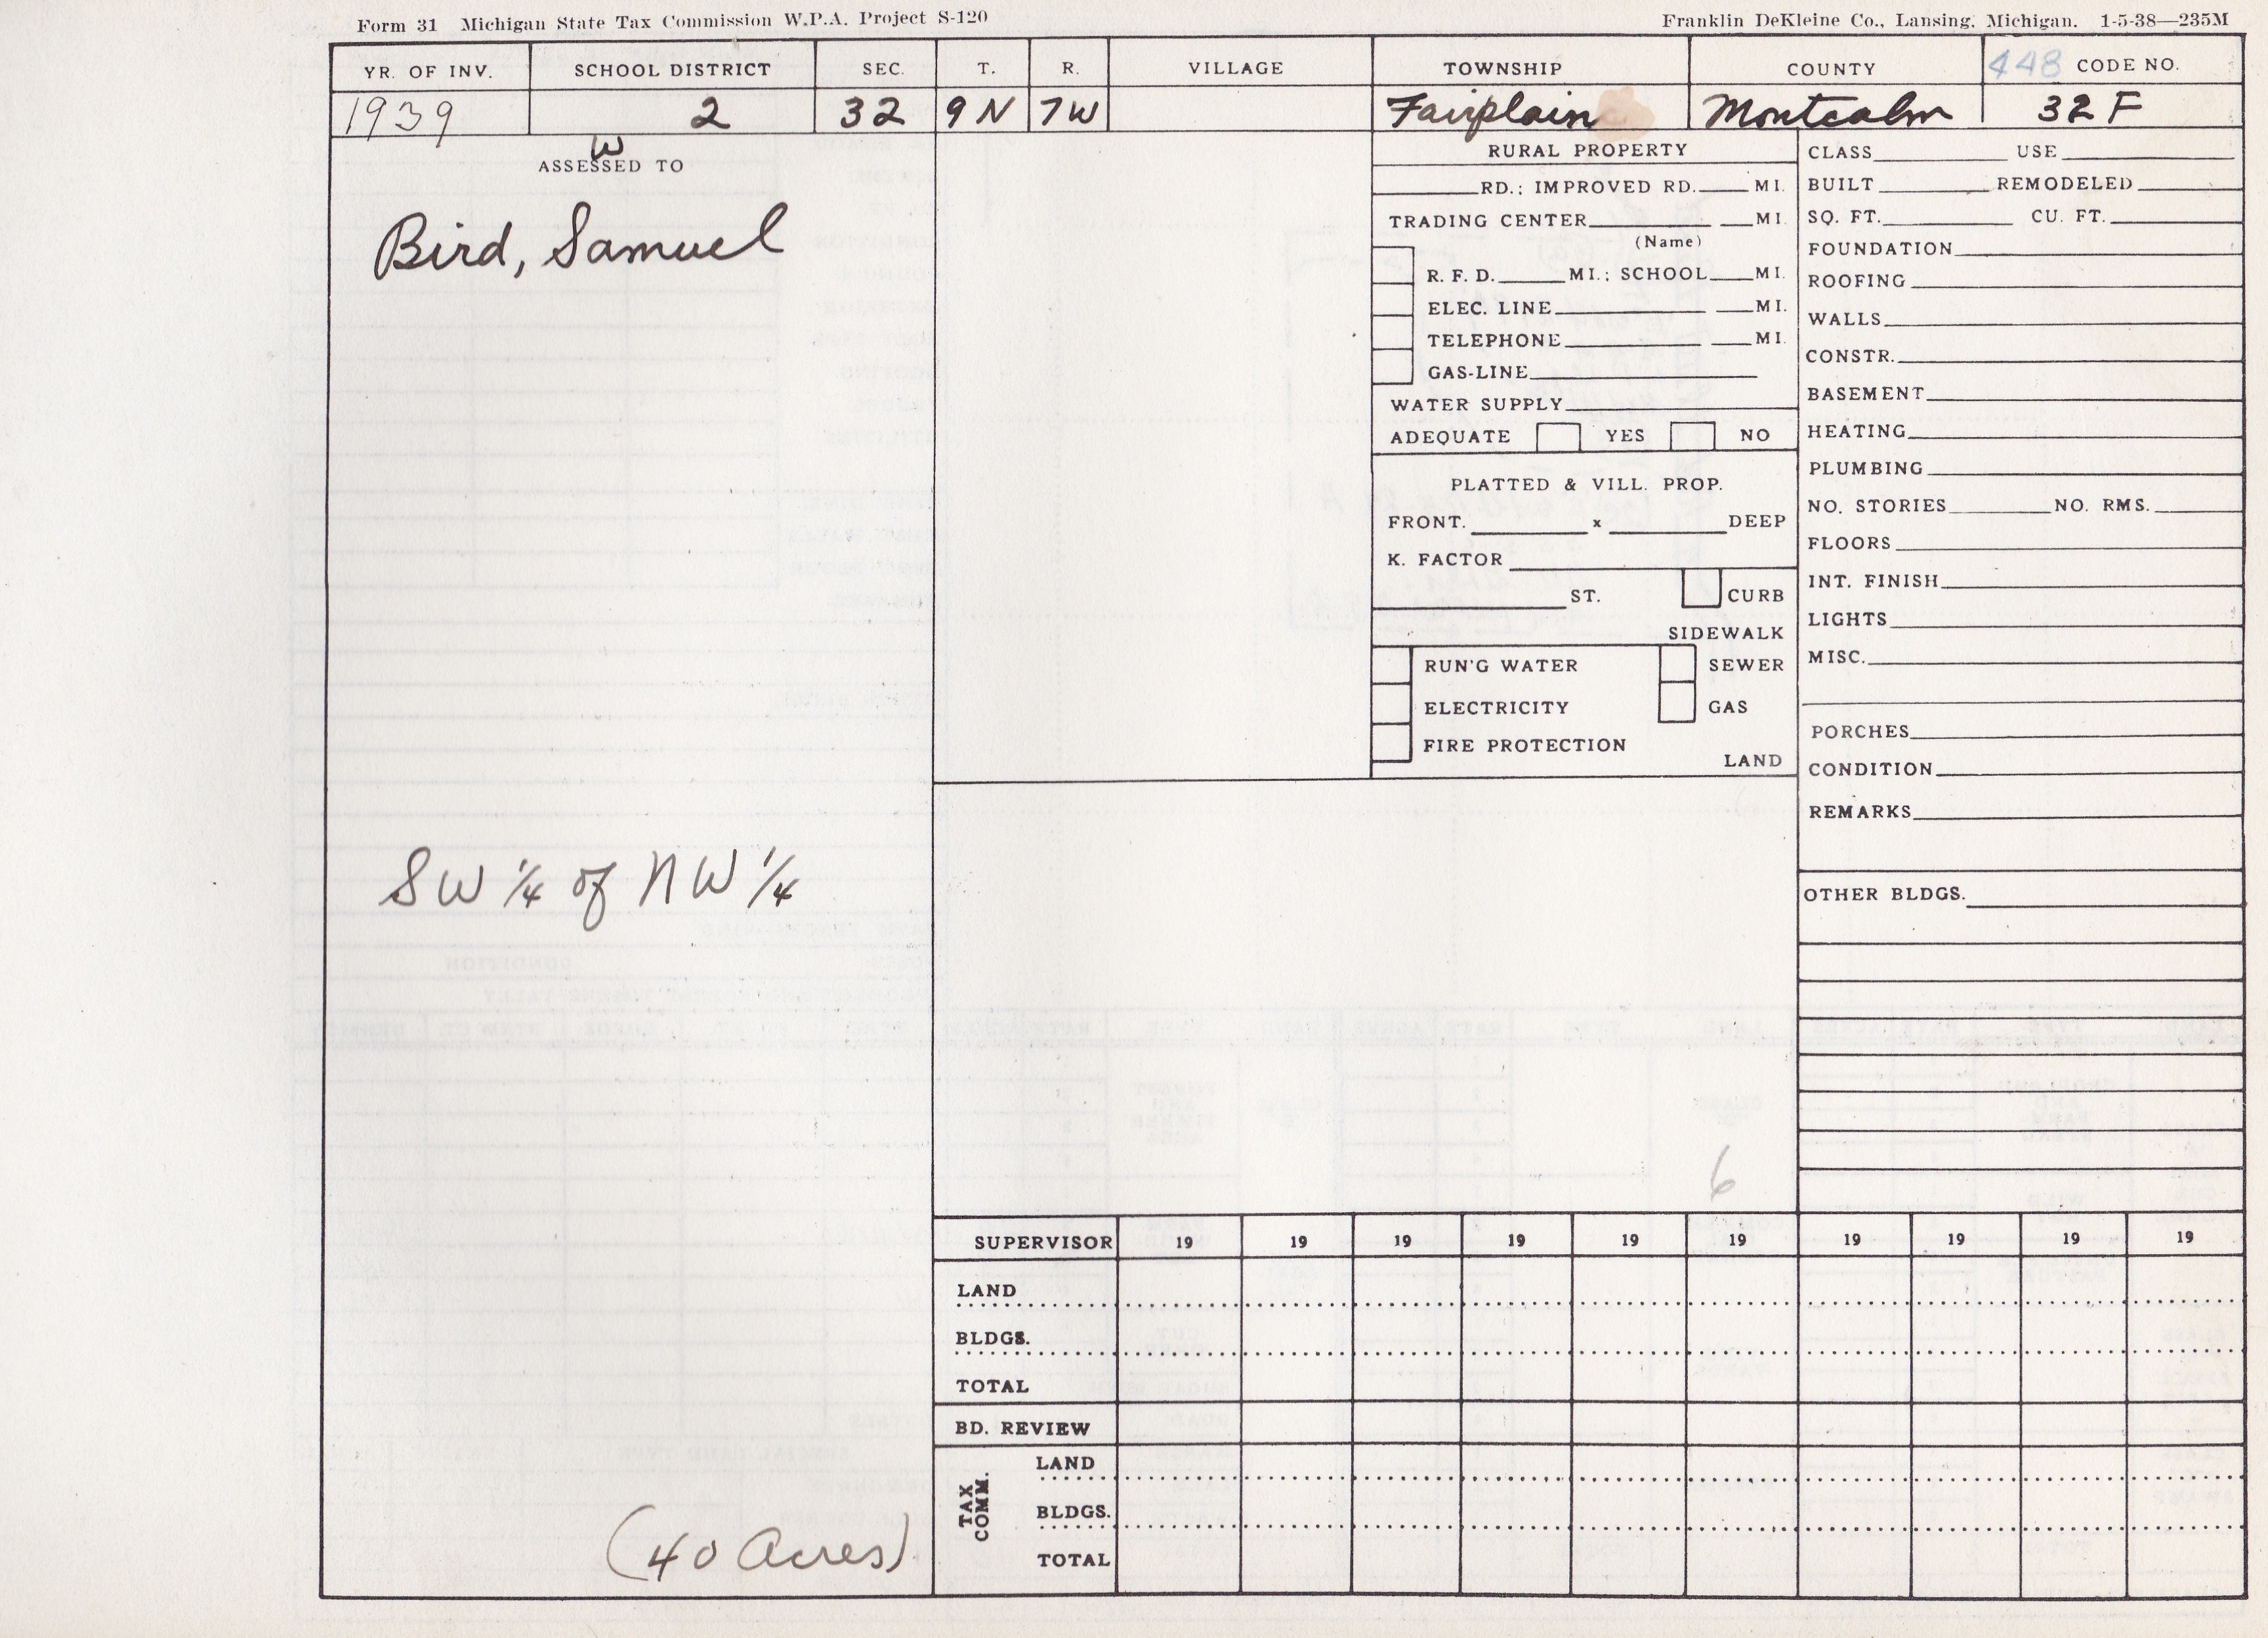 Form 31 Michigan State Tax Commission W.P.A. Project S-120
Franklin DeKleine Co., Lansing, Michigan. 1-5-38—235M
YR. OF INV. SCHOOL DISTRICT SEC. T. R. VILLAGE TOWNSHIP COUNTY 448 CODE NO.
1939 2 32 9 N 7 W Fairplain Montcalm 32 F
W
ASSESSED TO
Bird, Samuel
SW 1/4 of NW 1/4
(40 Acres)
RURAL PROPERTY
RD.; IMPROVED RD. MI.
TRADING CENTER MI.
(Name)
R. F. D. MI.; SCHOOL MI.
ELEC. LINE MI.
TELEPHONE MI.
GAS-LINE
WATER SUPPLY
ADEQUATE YES NO
PLATTED & VILL. PROP.
FRONT. x DEEP
K. FACTOR
ST. CURB
SIDEWALK
RUN'G WATER SEWER
ELECTRICITY GAS
FIRE PROTECTION
LAND
CLASS USE
BUILT REMODELED
SQ. FT. CU. FT.
FOUNDATION
ROOFING
WALLS
CONSTR.
BASEMENT
HEATING
PLUMBING
NO. STORIES NO. RMS.
FLOORS
INT. FINISH
LIGHTS
MISC.
PORCHES
CONDITION
REMARKS
OTHER BLDGS.
6
SUPERVISOR 19 19 19 19 19 19 19 19 19 19
LAND
BLDGS.
TOTAL
BD. REVIEW
TAX COMM.
LAND
BLDGS.
TOTAL